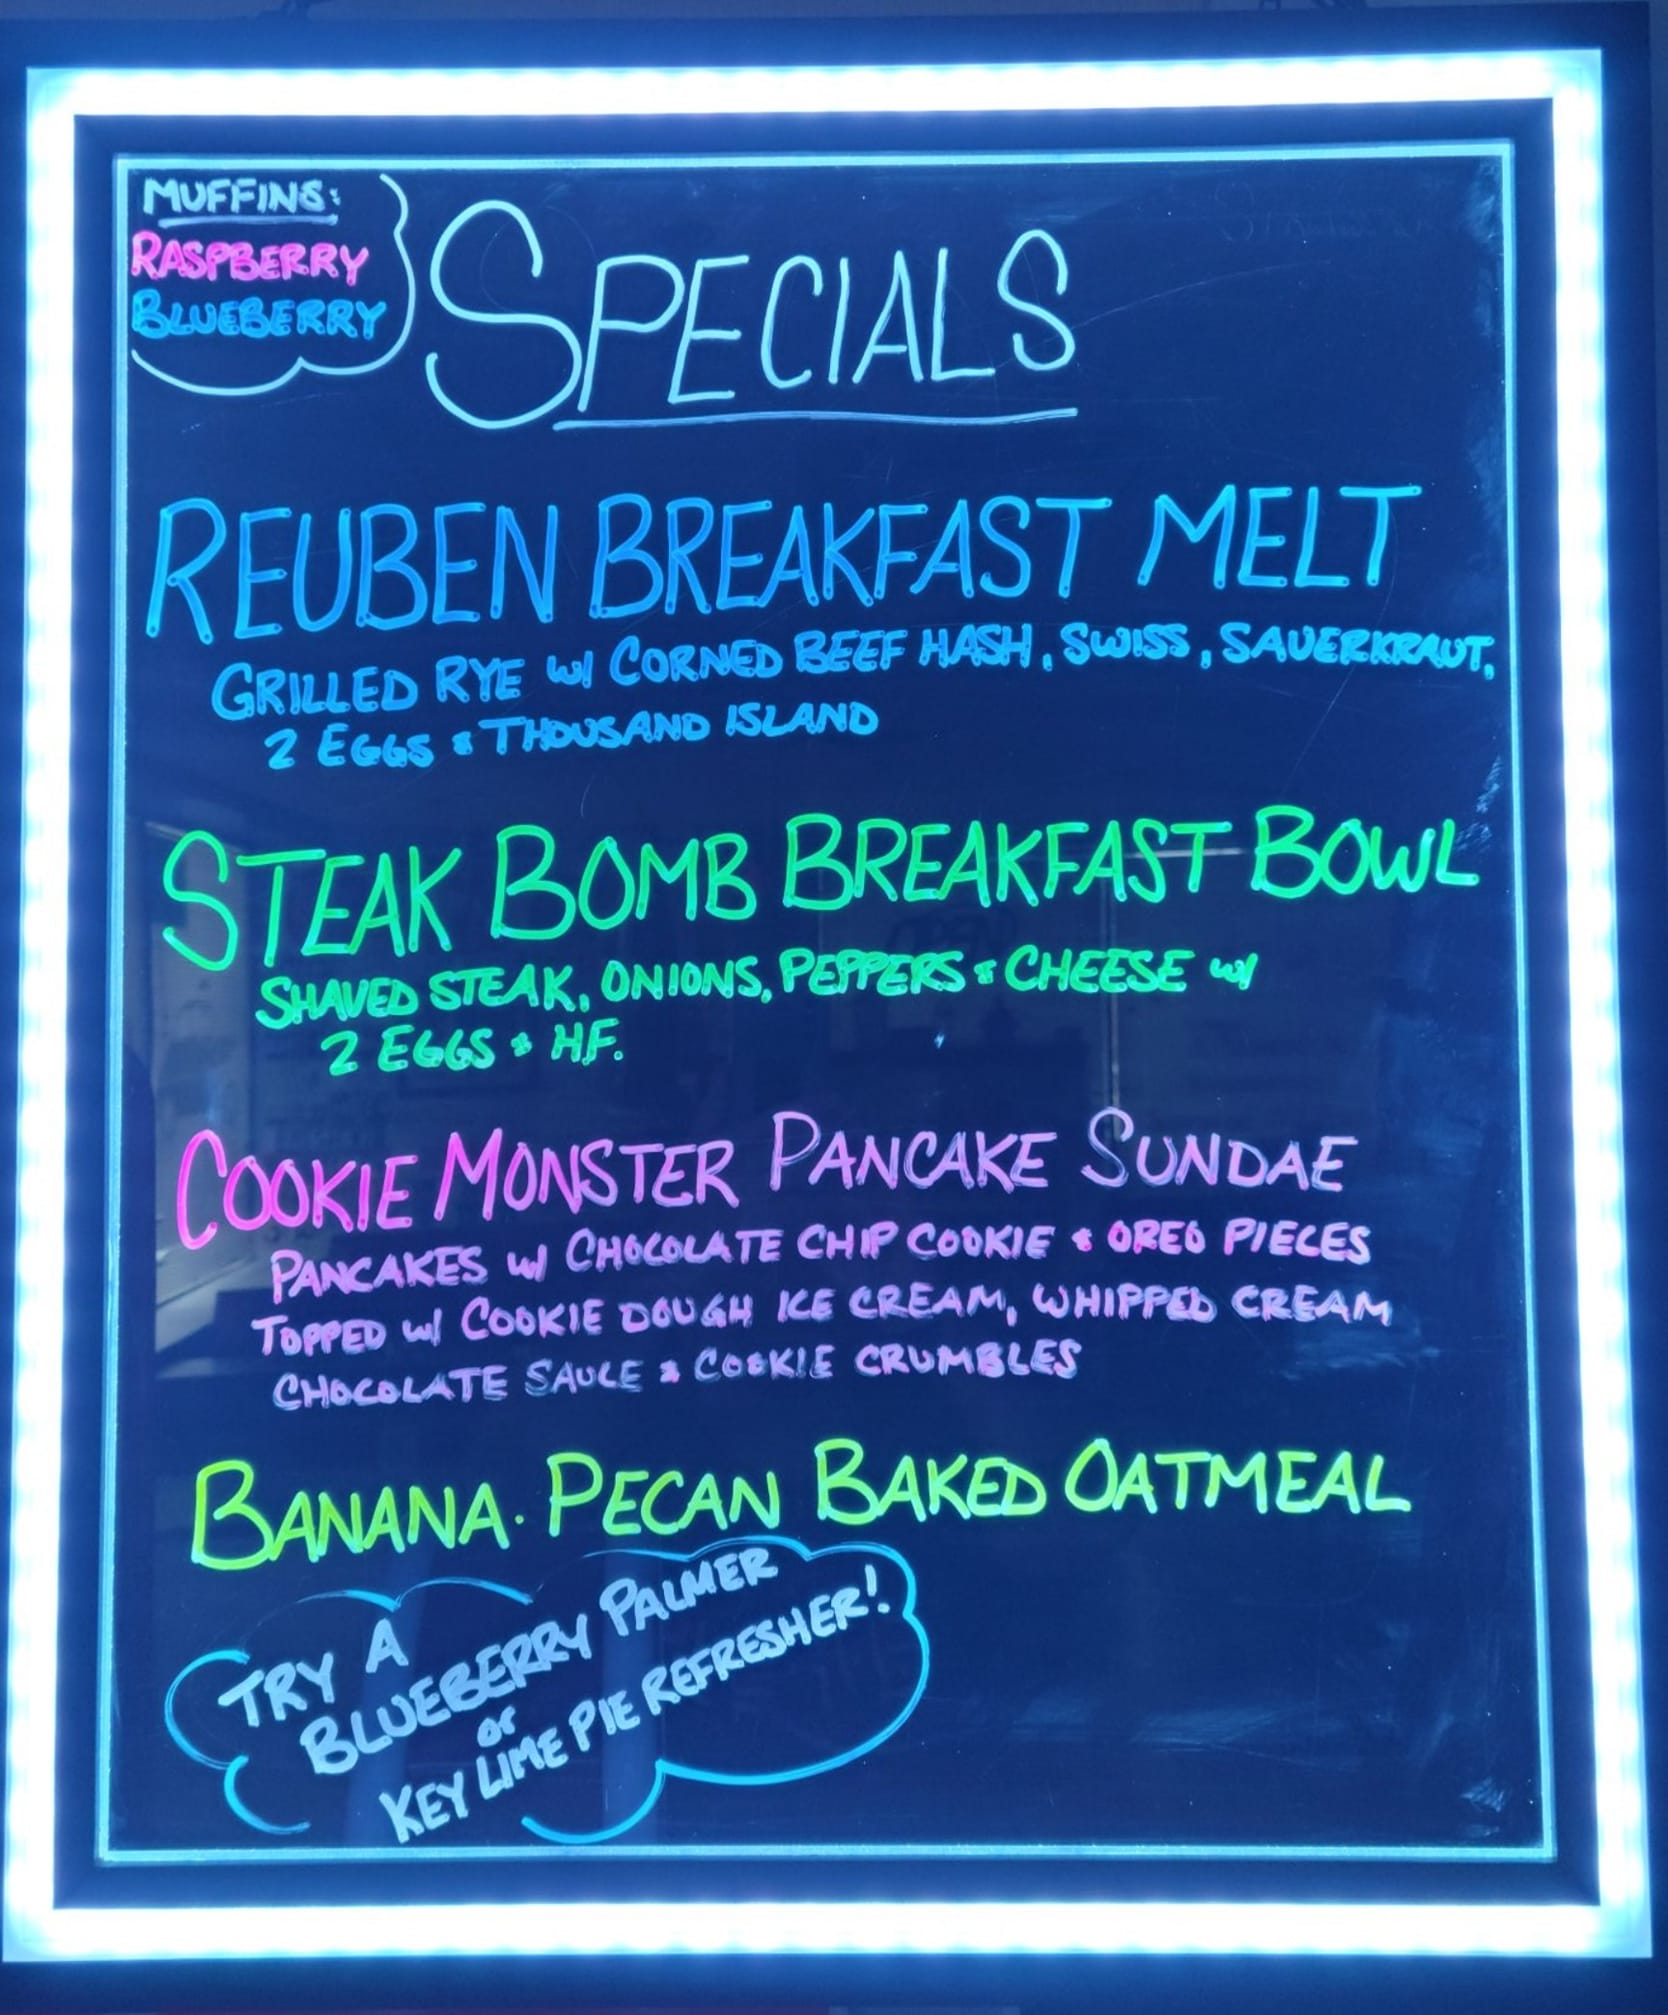 MUFFINS:
RASPBERRY
BLUEBERRY
SPECIALS
REUBEN BREAKFAST MELT
GRILLED RYE W/ CORNED BEEF HASH, SWISS, SAUERKRAUT,
2 EGGS & THOUSAND ISLAND
STEAK BOMB BREAKFAST BOWL
SHAVED STEAK, ONIONS, PEPPERS & CHEESE W/
2 EGGS & H.F.
COOKIE MONSTER PANCAKE SUNDAE
PANCAKES W/ CHOCOLATE CHIP COOKIE & OREO PIECES
TOPPED W/ COOKIE DOUGH ICE CREAM, WHIPPED CREAM
CHOCOLATE SAUCE & COOKIE CRUMBLES
BANANA·PECAN BAKED OATMEAL
TRY A
BLUEBERRY PALMER
or
KEY LIME PIE REFRESHER!